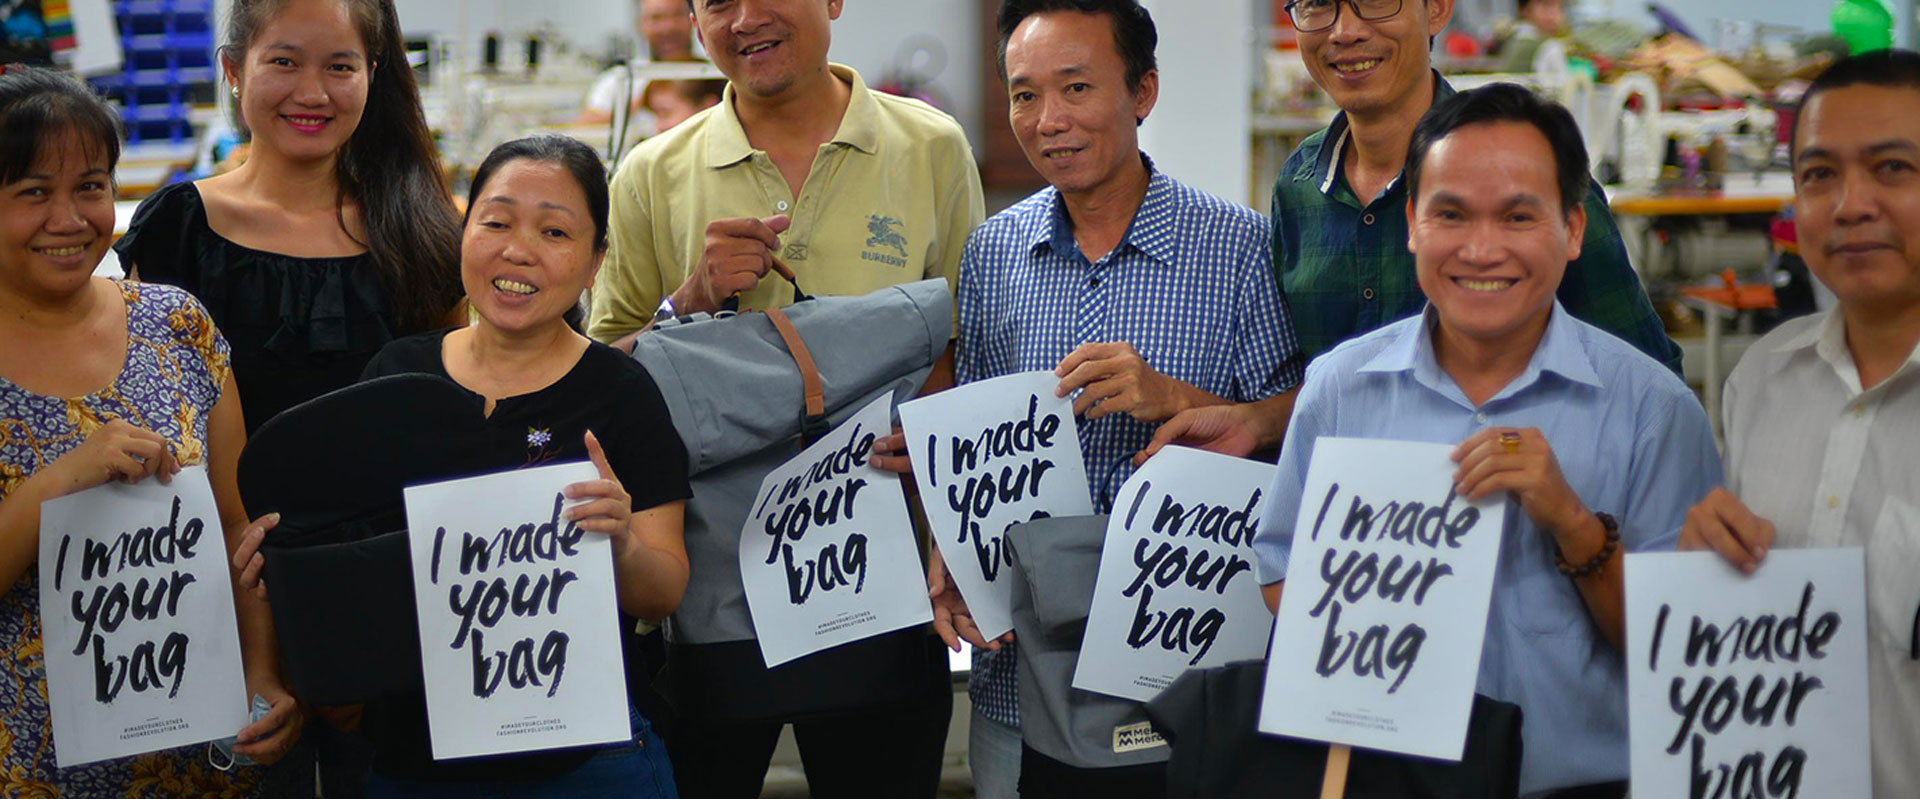 BURBERRY
I made
your
bag
#IMADEYOURCLOTHES
FASHIONREVOLUTION.ORG
I made
your
bag
#IMADEYOURCLOTHES
FASHIONREVOLUTION.ORG
I made
your
bag
#IMADEYOURCLOTHES
FASHIONREVOLUTION.ORG
I made
your
I made
your
bag
#IMADEYOURCLOTHES
I made
your
bag
#IMADEYOURCLOTHES
FASHIONREVOLUTION.ORG
I made
your
bag